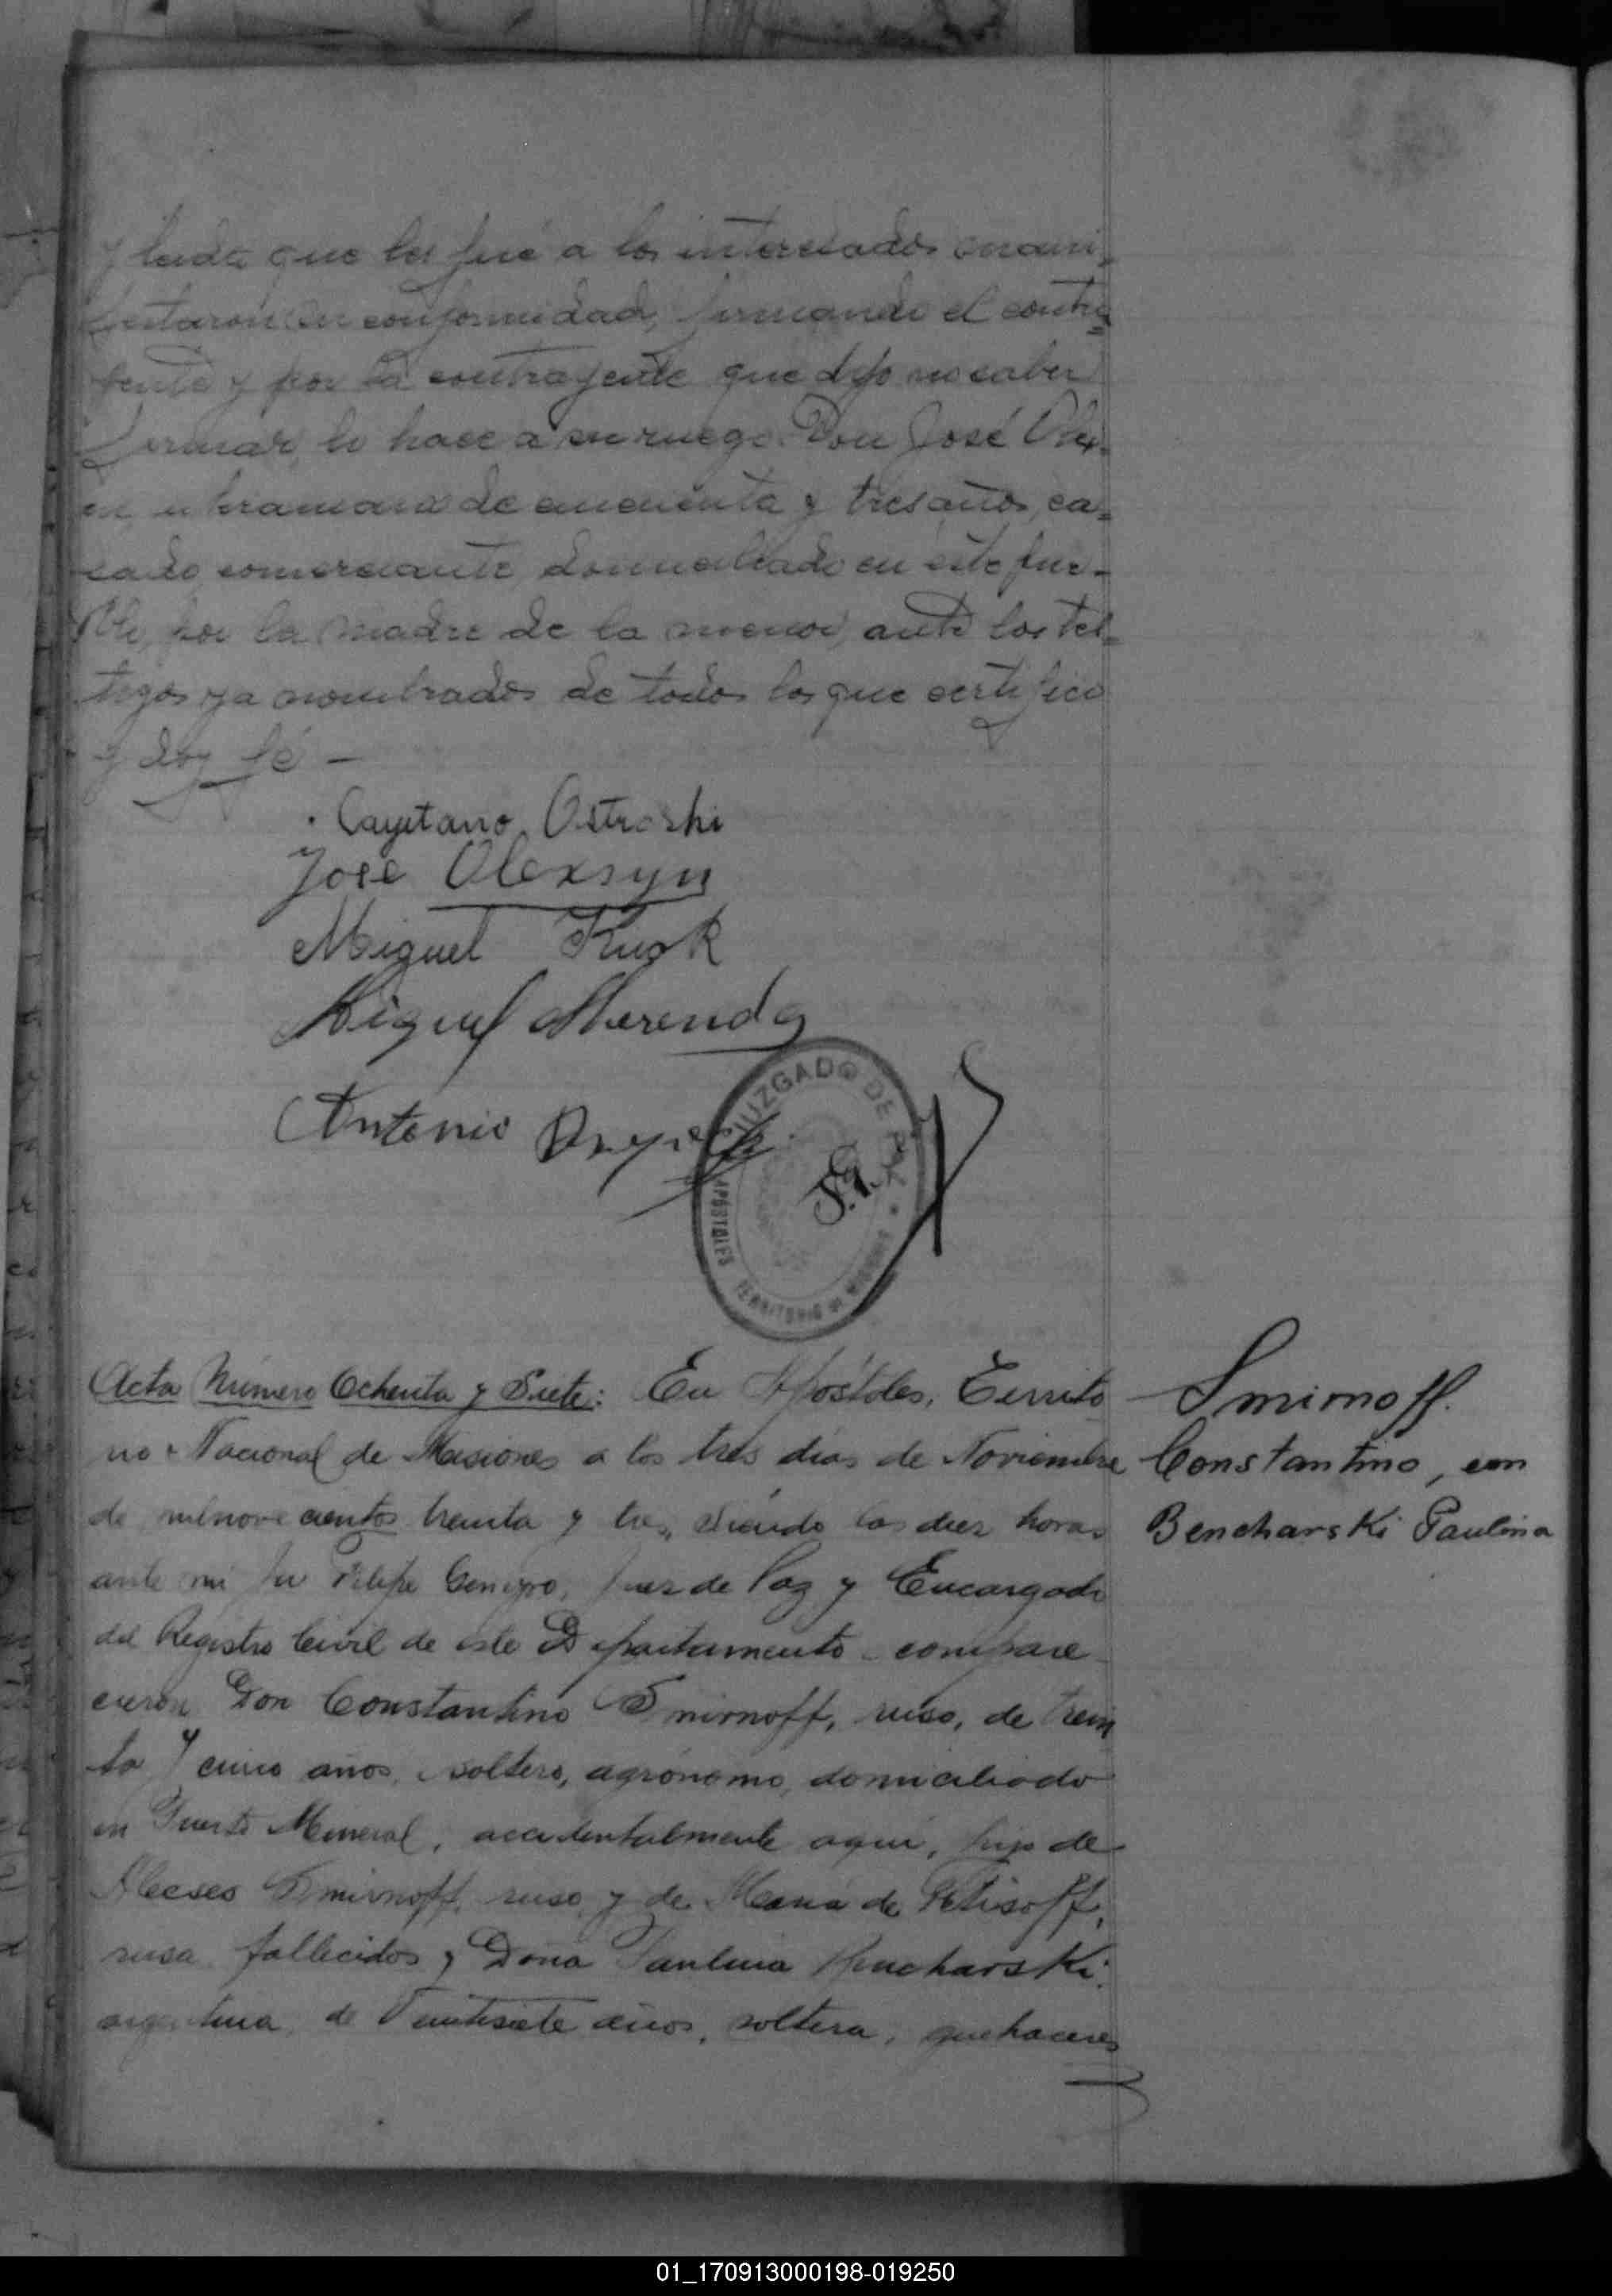 y leida que les fué a los interesados mani-
festaron su conformidad, firmando el contra-
yente y por la contrayente que dijo no saber
firmar, lo hace a su ruego Don José Olex-
in, ukraniano de cincuenta y tres años, ca-
sado, comerciante, domiciliado en este pue-
blo, por la madre de la menor, ante los tes-
tigos ya nombrados de todos los que certifico
y doy fé -
Cayetano Ostroski
José Olexsyn
Miguel
Miguel Merenda
Antonio
JUZGADO DE PAZ
APOSTOLES TERRITORIO DE MISIONES
Acta Número Ochenta y Siete: En Apóstoles, Territo
rio Nacional de Misiones a los tres días de Noviembre
de mil novecientos treinta y tres, siendo las diez horas
ante mi Felipe, Juez de Paz y Encargado
del Registro Civil de este Departamento compare
cieron Don Constantino Smirnoff, ruso, de trein
ta y cinco años, soltero, agrónomo, domiciliado
en Puerto Mineral, accidentalmente aquí, hijo de
Smirnoff, ruso, y de María de Fetisoff,
rusa fallecidos y Doña Paulina Bencharski,
argentina, de Veintisiete años, soltera, quehaceres
Smirnoff.
Constantino, con
Bencharski Paulina
01_170913000198-019250